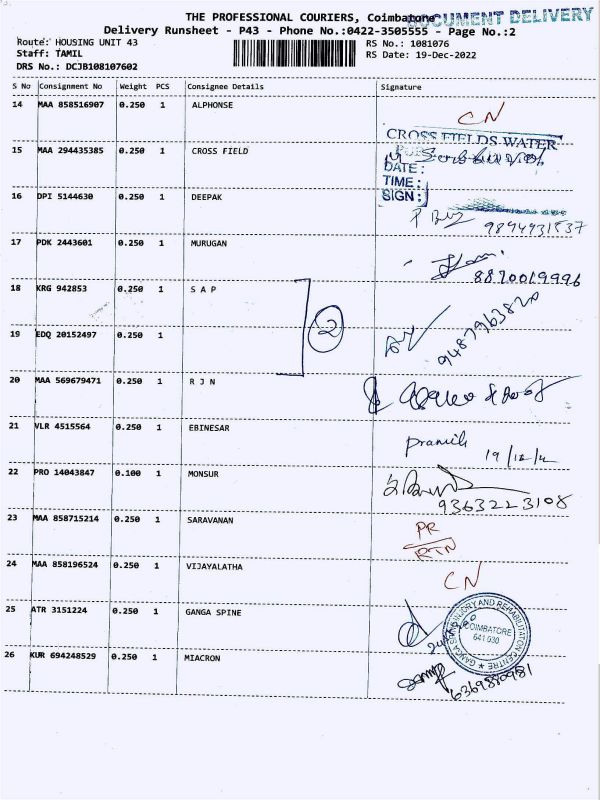 THE PROFESSIONAL COURIERS, Coimbatore
DOCUMENT DELIVERY
Delivery Runsheet - P43 - Phone No.:0422-3505555 - Page No.:2
Route: HOUSING UNIT 43
RS No.: 1081076
Staff: TAMIL
RS Date: 19-Dec-2022
DRS No.: DCJB108107602
S No Consignment No Weight PCS Consignee Details Signature
14 MAA 858516907 0.250 1 ALPHONSE
CN
CROSS FIELDS WATER
15 MAA 294435385 0.250 1 CROSS FIELD
DATE:
TIME:
16 DPI 5144630 0.250 1 DEEPAK
SIGN:
9894931537
17 PDK 2443601 0.250 1 MURUGAN
8870019996
18 KRG 942853 0.250 1 S A P
2
19 EDQ 20152497 0.250 1
20 MAA 569679471 0.250 1 R J N
21 VLR 4515564 0.250 1 EBINESAR
Pramila
22 PRO 14043847 0.100 1 MONSUR
9363223108
23 MAA 858715214 0.250 1 SARAVANAN
PR
RTN
24 MAA 858196524 0.250 1 VIJAYALATHA
CN
25 ATR 3151224 0.250 1 GANGA SPINE
GANGA SPINE INJURY AND REHABILITATION CENTRE
COIMBATORE
641 030
26 KUR 694248529 0.250 1 MIACRON
6369880981